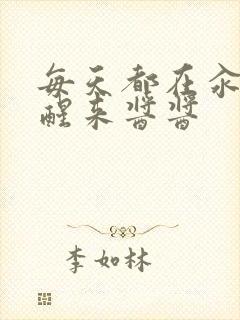 每天都在汆
醒来酱酱
李如林